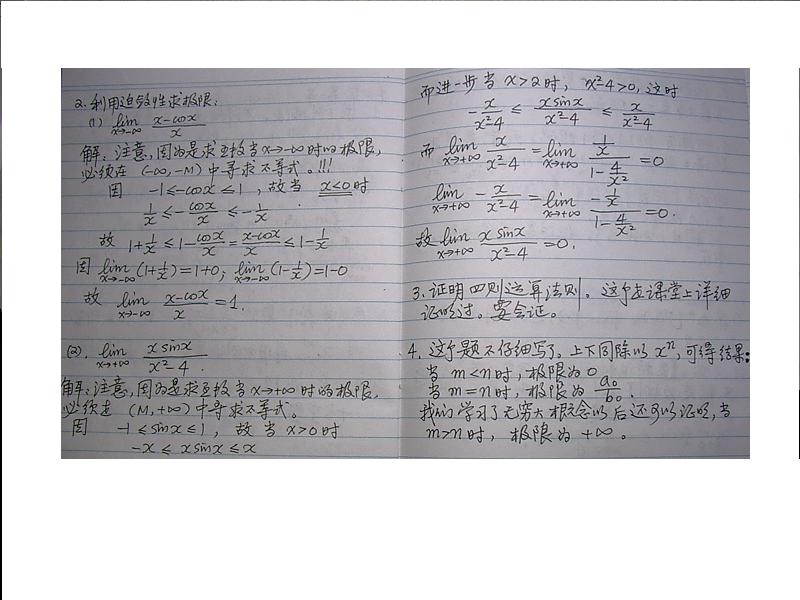 2. 利用迫敛性求极限:
(1) lim x→-∞ (x-cosx)/x
解: 注意, 因为是求函数当 x→-∞ 时的极限,
必须在 (-∞, -M) 中寻求不等式。!!!
因 -1≤-cosx≤1, 故当 x<0 时
1/x ≤ -cosx/x ≤ -1/x
故 1+1/x ≤ 1-cosx/x = (x-cosx)/x ≤ 1-1/x
因 lim x→-∞ (1+1/x)=1+0; lim x→-∞ (1-1/x)=1-0
故 lim x→-∞ (x-cosx)/x = 1.
(2). lim x→+∞ (x sinx)/(x²-4).
解: 注意, 因为是求函数当 x→+∞ 时的极限,
必须在 (M, +∞) 中寻求不等式。
因 -1≤sinx≤1, 故当 x>0 时
-x ≤ x sinx ≤ x
而进一步当 x>2 时, x²-4>0, 这时
-x/(x²-4) ≤ (x sinx)/(x²-4) ≤ x/(x²-4)
而 lim x→+∞ x/(x²-4) = lim x→+∞ (1/x)/(1-4/x²) = 0
lim x→+∞ -x/(x²-4) = lim x→+∞ (-1/x)/(1-4/x²) = 0.
故 lim x→+∞ (x sinx)/(x²-4) = 0.
3. 证明四则运算法则。这个在课堂上详细
证明过。要会证。
4. 这个题不仔细写了。上下同除以 xⁿ, 可得结果:
当 m<n 时, 极限为 0
当 m=n 时, 极限为 a₀/b₀.
我们学习了无穷大概念以后还可以证明, 当
m>n 时, 极限为 +∞。